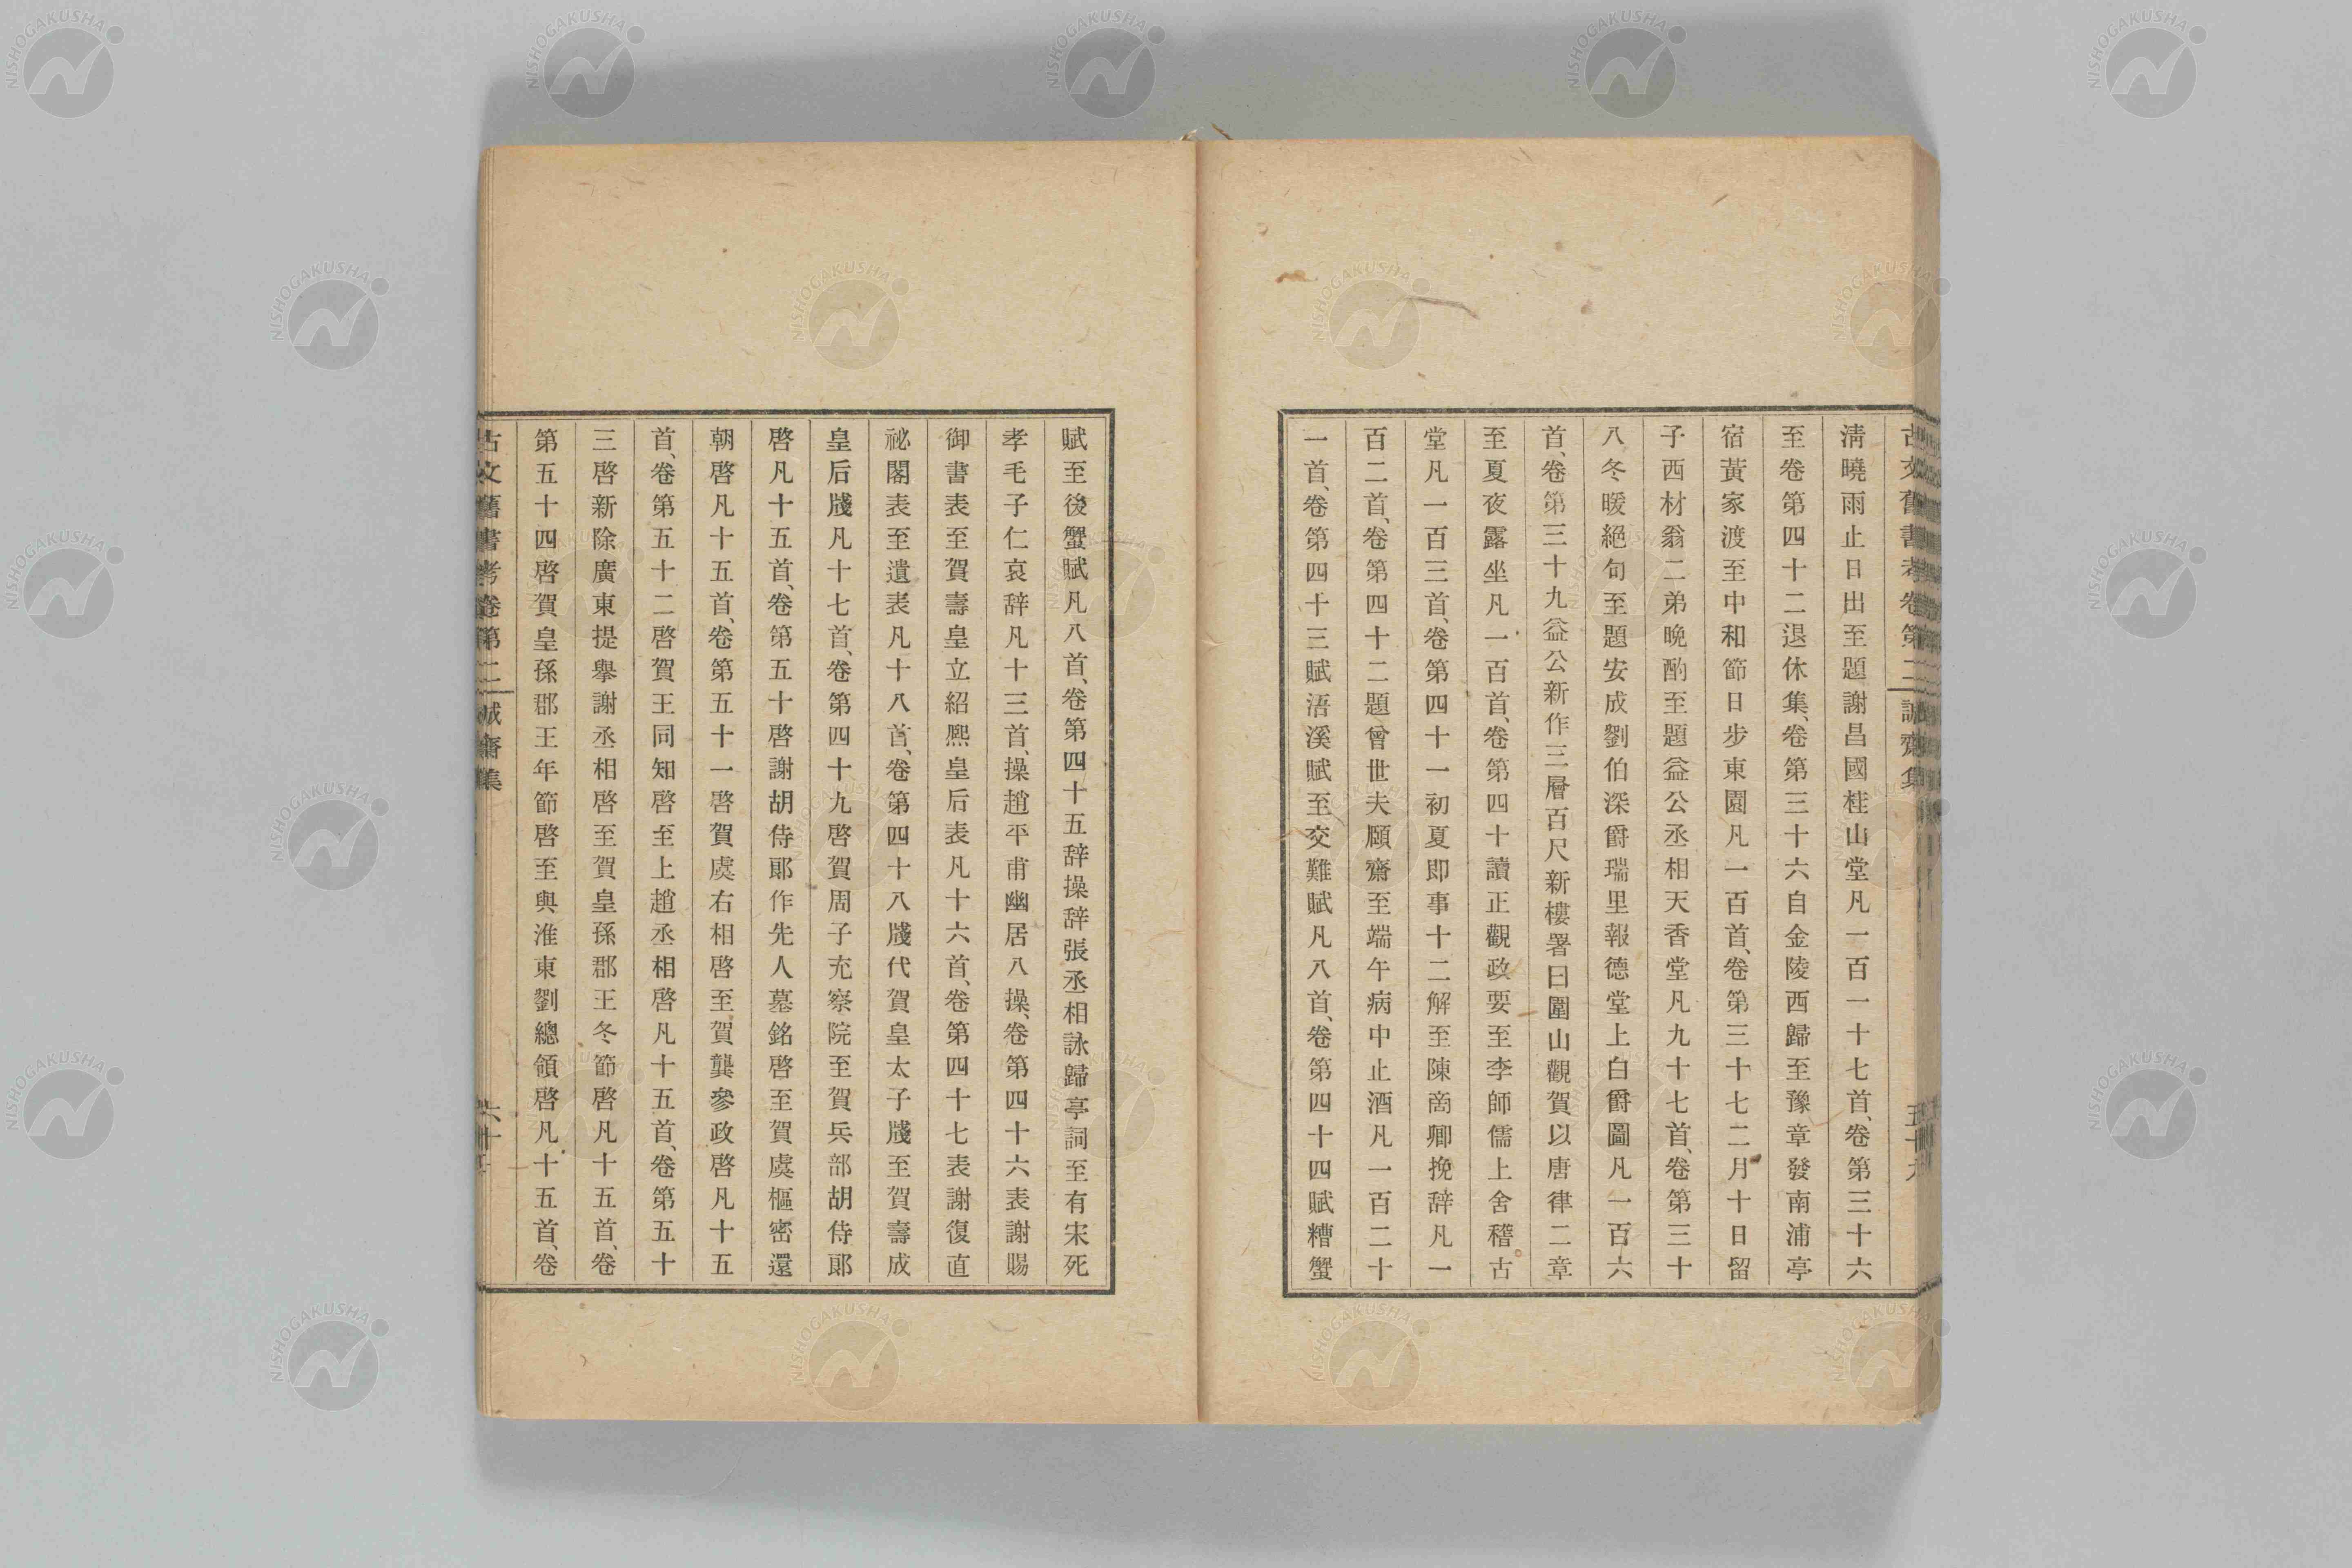 古文舊書考卷第二 誠齋集 五十九
淸曉雨止日出至題謝昌國桂山堂凡一百一十七首、卷第三十六
至卷第四十二退休集、卷第三十六自金陵西歸至豫章發南浦亭
宿黃家渡至中和節日步東園凡一百首、卷第三十七二月十日留
子西材翁二弟晩酌至題益公丞相天香堂凡九十七首、卷第三十
八冬暖絕句至題安成劉伯深爵瑞里報德堂上白爵圖凡一百六
首、卷第三十九益公新作三層百尺新樓署曰圍山觀賀以唐律二章
至夏夜露坐凡一百首、卷第四十讀正觀政要至李師儒上舍稽古
堂凡一百三首、卷第四十一初夏即事十二解至陳啇卿挽辞凡一
百二首、卷第四十二題曾世夫願齋至端午病中止酒凡一百二十
一首、卷第四十三賦浯溪賦至交難賦凡八首、卷第四十四賦糟蟹
賦至後蟹賦凡八首、卷第四十五辞操辞張丞相詠歸亭詞至有宋死
孝毛子仁哀辞凡十三首、操趙平甫幽居八操、卷第四十六表謝賜
御書表至賀壽皇立紹熙皇后表凡十六首、卷第四十七表謝復直
祕閣表至遺表凡十八首、卷第四十八牋代賀皇太子牋至賀壽成
皇后牋凡十七首、卷第四十九啓賀周子充察院至賀兵部胡侍郞
啓凡十五首、卷第五十啓謝胡侍郞作先人墓銘啓至賀虞樞密還
朝啓凡十五首、卷第五十一啓賀虞右相啓至賀龔參政啓凡十五
首、卷第五十二啓賀王同知啓至上趙丞相啓凡十五首、卷第五十
三啓新除廣東提擧謝丞相啓至賀皇孫郡王冬節啓凡十五首、卷
第五十四啓賀皇孫郡王年節啓至與淮東劉總領啓凡十五首、卷
古文舊書考卷第二 誠齋集 六十
NISHOGAKUSHA